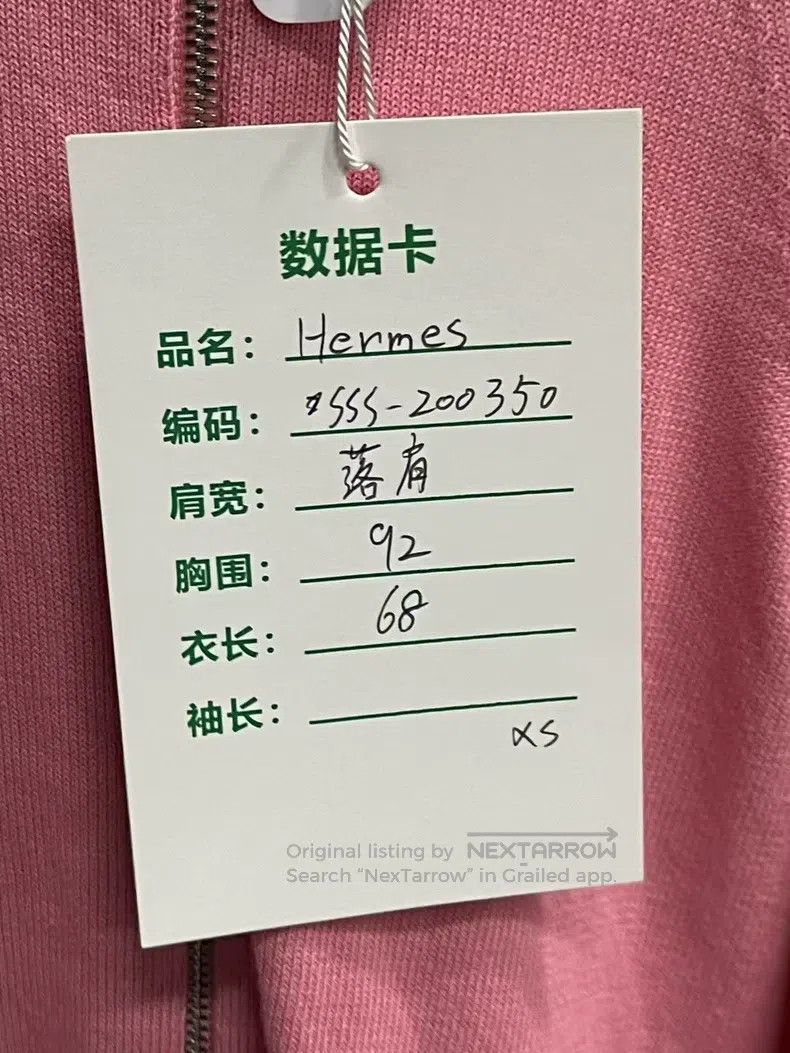 数据卡
品名： Hermes
编码： SSS-200350
肩宽： 落肩
胸围： 92
衣长： 68
袖长：
XS
Original listing by NEXTARROW
Search “NexTarrow” in Grailed app.